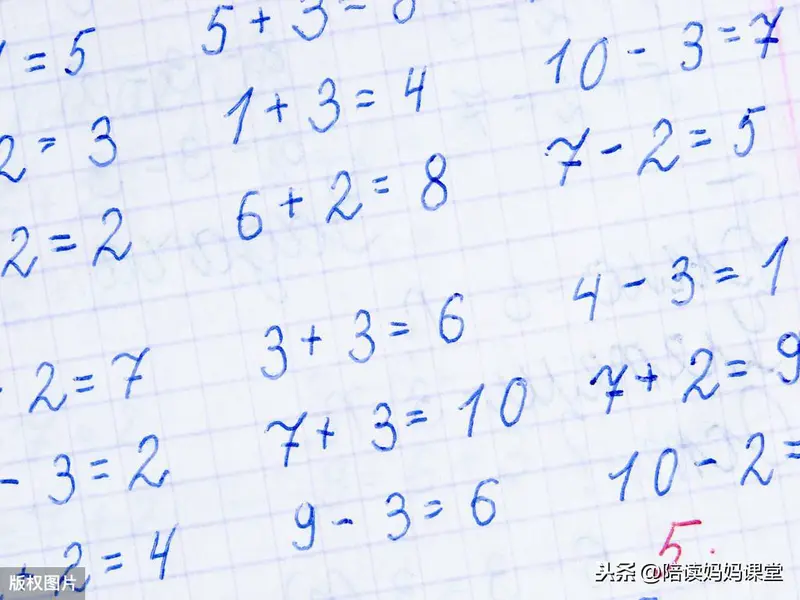 = 5
2 = 3
2 = 2
- 2 = 7
- 3 = 2
+ 2 = 4
5 + 3 =
1 + 3 = 4
6 + 2 = 8
3 + 3 = 6
7 + 3 = 10
9 - 3 = 6
10 - 3 = 7
7 - 2 = 5
4 - 3 = 1
7 + 2 = 9
10 - 2 =
5.
版权图片
头条 @陪读妈妈课堂